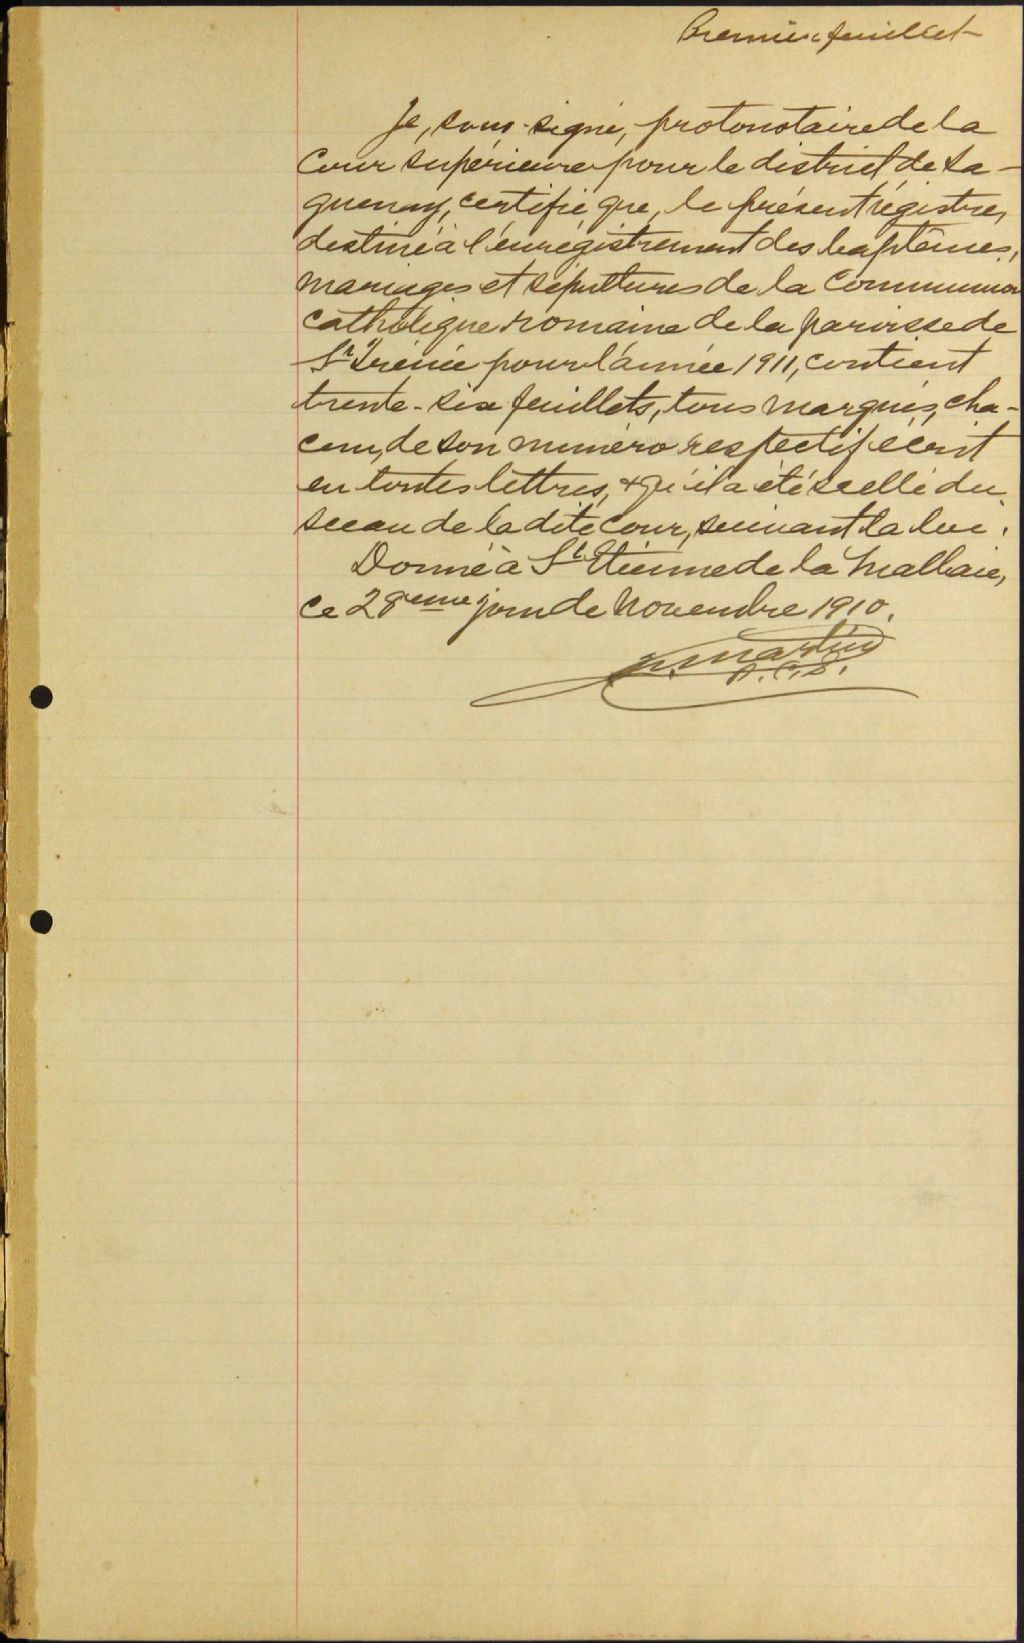 Premier feuillet
Je, sous-signé, protonotaire de la
Cour supérieure pour le district de Sa-
guenay, certifie que, le présent régistre,
destiné à l'enrégistrement des baptêmes,
mariages et sépultures de la Communion
catholique romaine de la paroisse de
St Irénée pour l'année 1911, contient
trente-six feuillets, tous marqués, cha-
cun, de son numéro respectif écrit
en toutes lettres, & qu'il a été scellé du
sceau de la dite Cour, suivant la loi.
Donné à St Etienne de la Malbaie,
ce 28eme jour de Novembre 1910.
Martin
P.C.S.